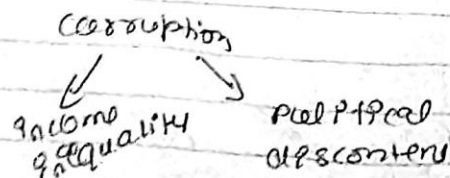 Corruption
Income
Inequality
Political
discontent